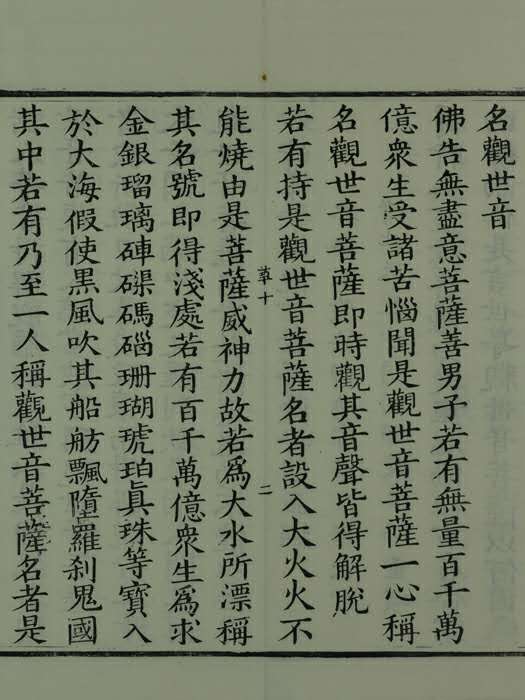 名觀世音
佛告無盡意菩薩善男子若有無量百千萬
億衆生受諸苦惱聞是觀世音菩薩一心稱
名觀世音菩薩即時觀其音聲皆得解脫
若有持是觀世音菩薩名者設入大火火不
草十
二
能燒由是菩薩威神力故若爲大水所漂稱
其名號即得淺處若有百千萬億衆生爲求
金銀瑠璃硨磲碼碯珊瑚琥珀眞珠等寶入
於大海假使黑風吹其船舫飄墮羅刹鬼國
其中若有乃至一人稱觀世音菩薩名者是